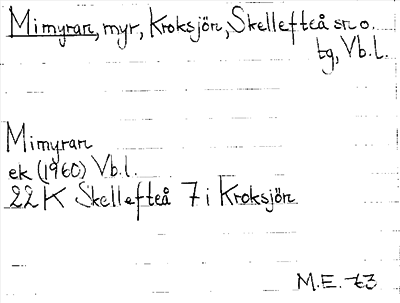 Mimyran, myr, Kroksjön, Skellefteå sn o.
tg, Vb.l.
Mimyran
ek (1960) Vb.l.
22 K Skellefteå 7 i Kroksjön
M.E. 73